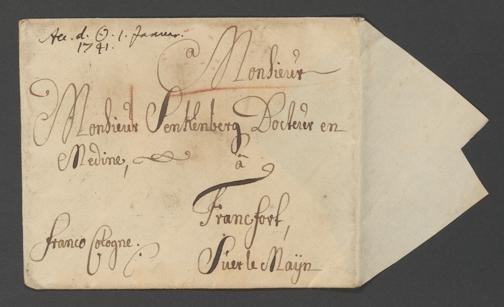 Acc. d. ☉. 1. Januar.
1741.
a Monsieur
Monsieur Senkenberg Docteur en
Medine,
à
Francfort,
Suer le Maÿn
franco Cologne.